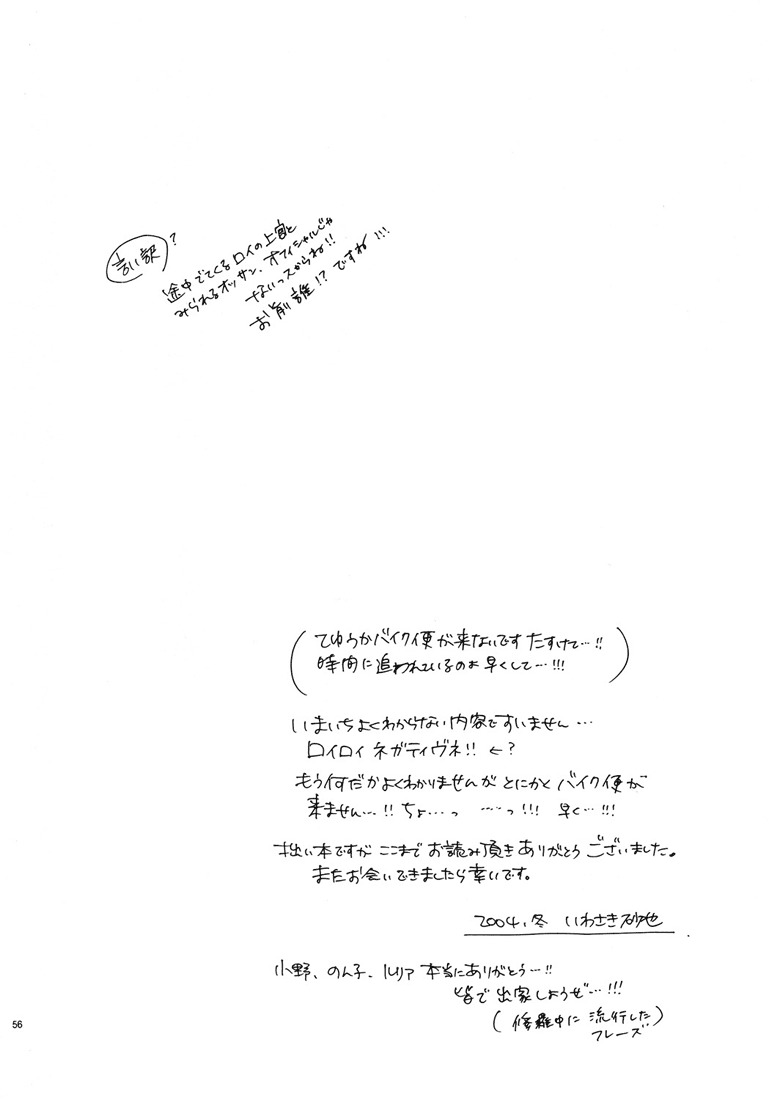 言い訳?
途中でてくるロイの上官と
みられるオッサン、オフィシャルじゃ
ないっスからね!!
お前誰!?ですね!!!
(てゆうかバイク便が来ないです たすけて…!!
時間に追われているのよ 早くして…!!!)
いまいちよくわからない内容ですいません…
ロイロイ ネガティヴネ!! ←?
もう何だかよくわかりませんが とにかく バイク便が
来ません…!! ちょ…っ ……っ!!! 早く…!!!
拙い本ですが ここまで お読み頂き ありがとう ございました。
またお会いできましたら幸いです。
2004.冬 いわさき砂也
小野、のん子、ルリア 本当にありがとう…!!
皆で出家しようぜ…!!!
(修羅中に 流行した
フレーズ)
56